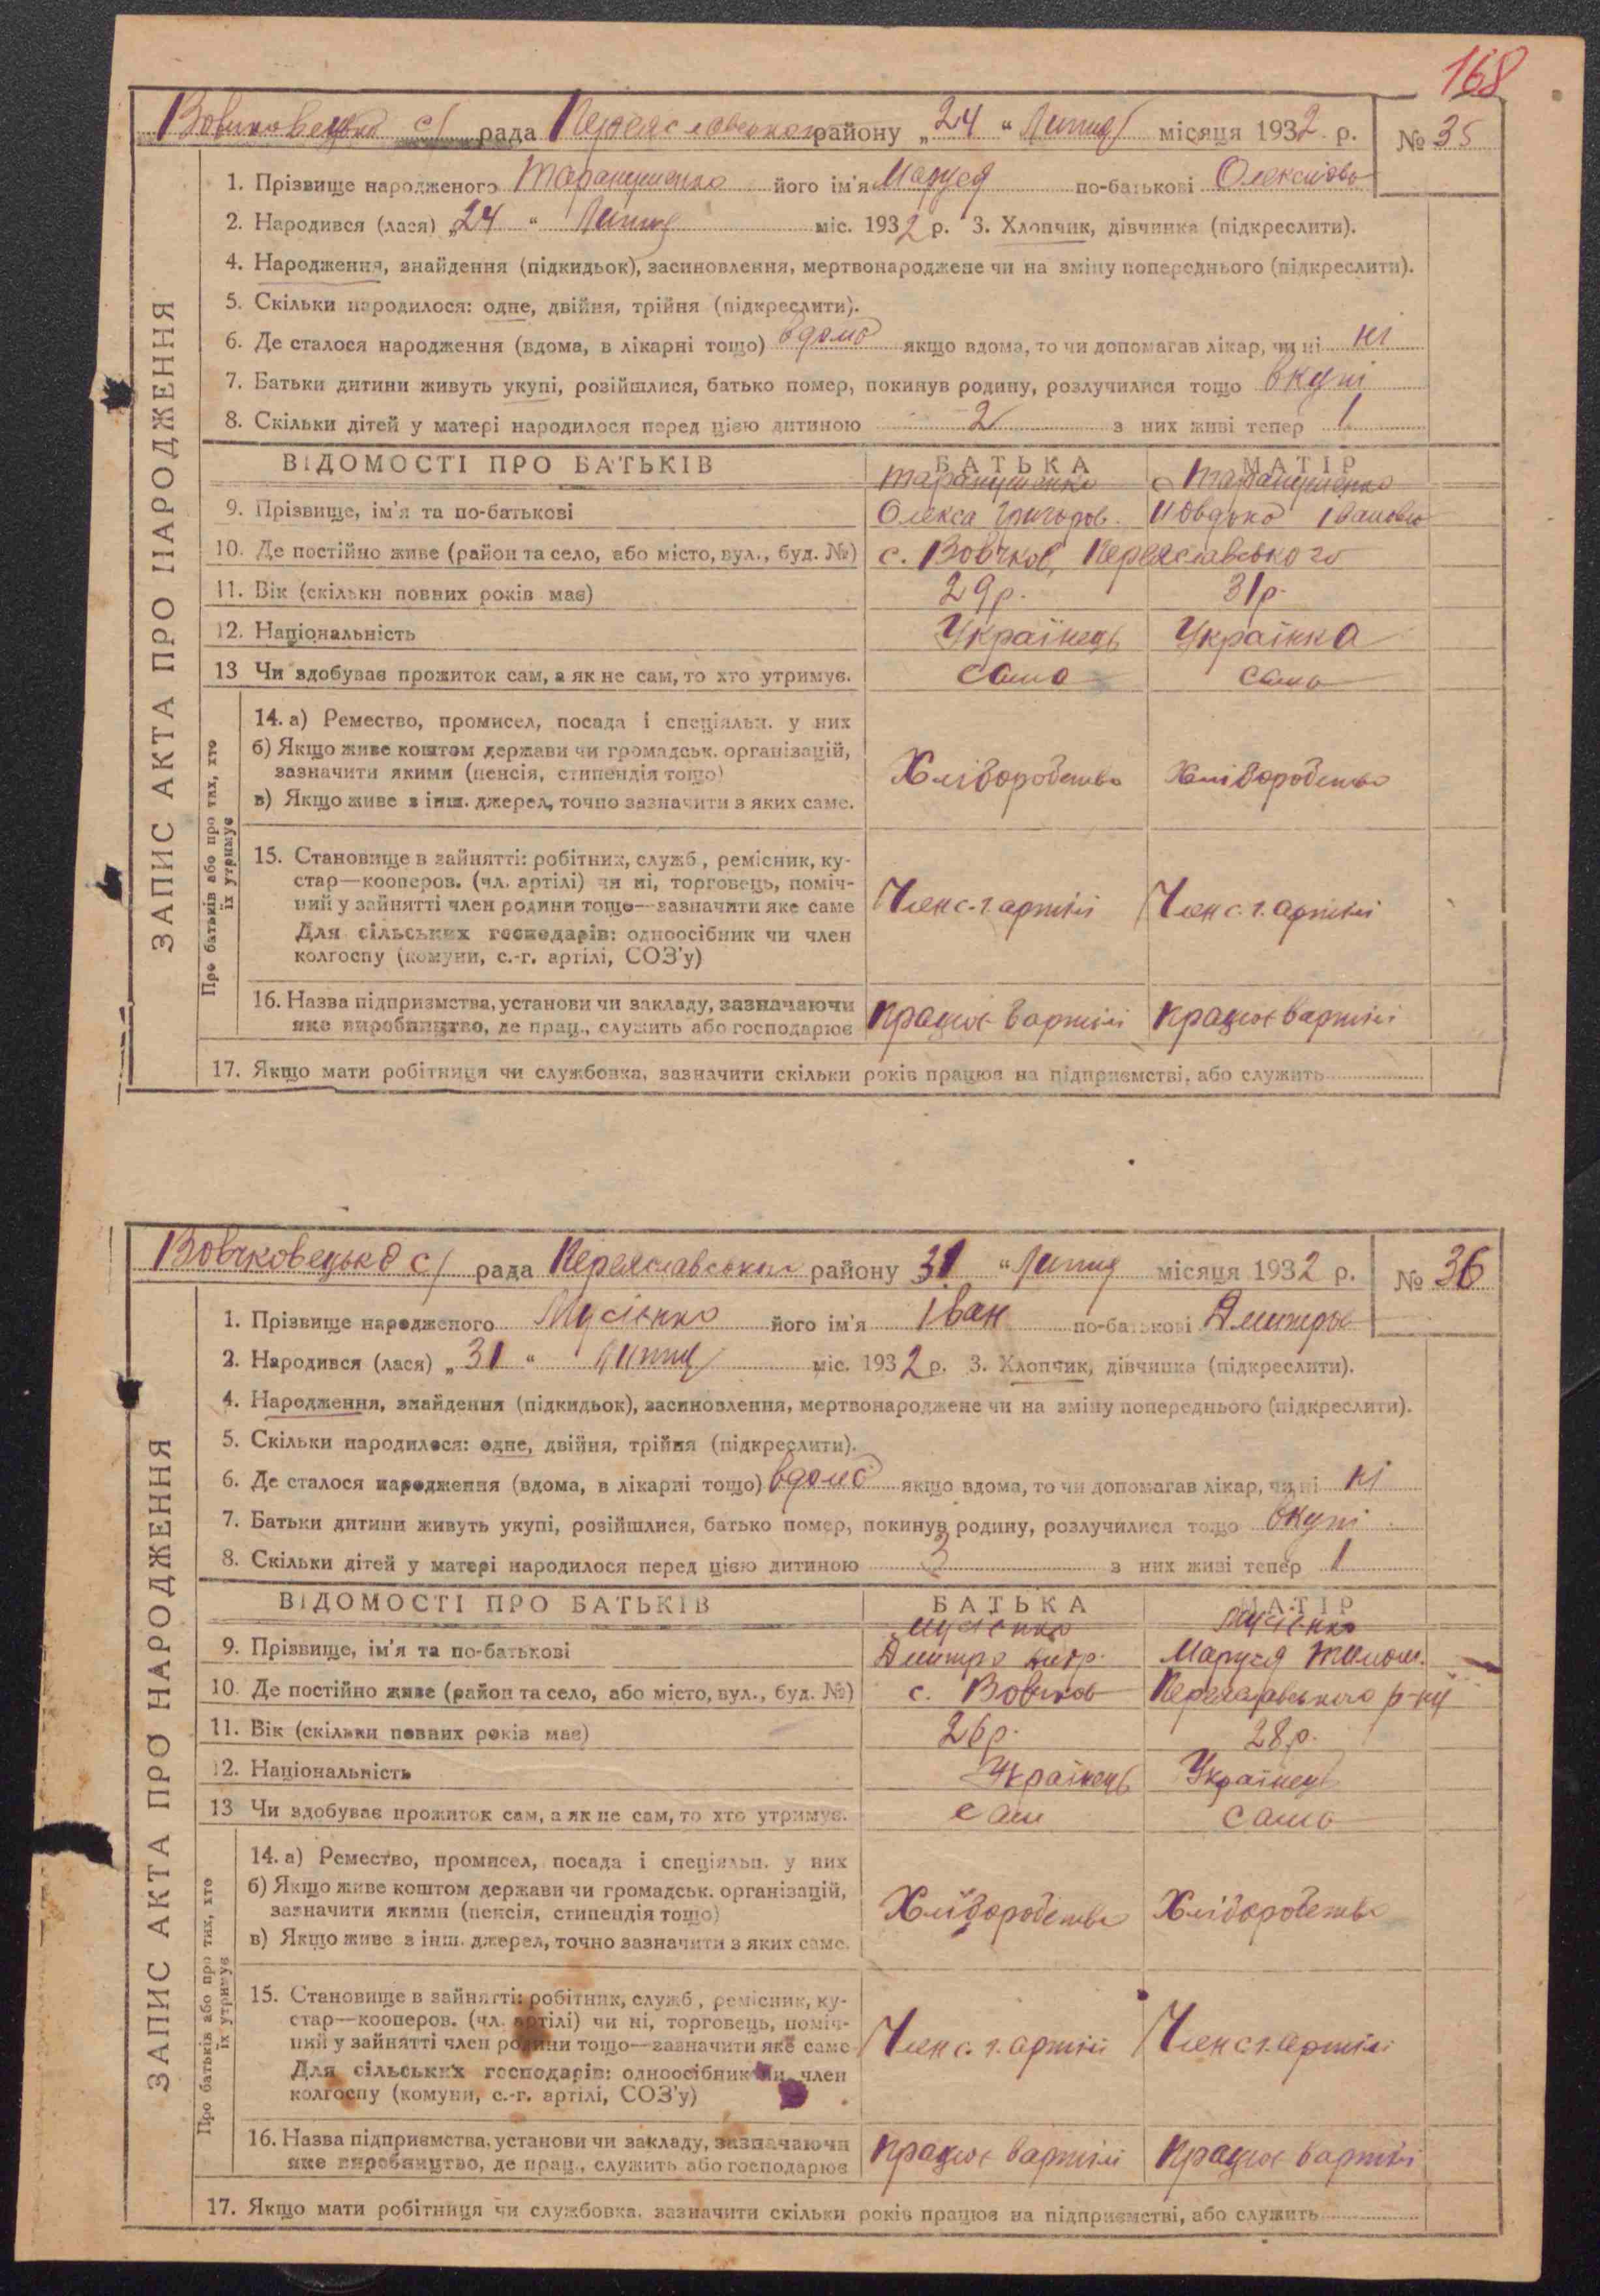 168
Вовчковецька с/ рада Переяславського району „24 “ Липня місяця 1932 р. № 35
1. Прізвище народженого Таранушенко його ім'я Маруся по-батькові Олексіовн
2. Народився (лася) „24 “ Липня міс. 1932 р. 3. Хлопчик, дівчинка (підкреслити).
4. Народження, знайдення (підкидьок), засиновлення, мертвонароджене чи на зміну попереднього (підкреслити).
5. Скільки народилося: одне, двійня, трійня (підкреслити).
6. Де сталося народження (вдома, в лікарні тощо) вдома якщо вдома, то чи допомагав лікар, чи ні ні
7. Батьки дитини живуть укупі, розійшлися, батько помер, покинув родину, розлучилися тощо вкупі
8. Скільки дітей у матері народилося перед цією дитиною 2 з них живі тепер 1
ВІДОМОСТІ ПРО БАТЬКІВ БАТЬКА МАТІР
Таранушенко Таранушенко
9. Прізвище, ім'я та по-батькові Олекса Григоров. Івановн
10. Де постійно живе (район та село, або місто, вул., буд. №) с. Вовчков, Переяславського
11. Вік (скільки повних років має) 29р. 31р.
12. Національність Українець Українка
13 Чи здобуває прожиток сам, а як не сам, то хто утримує. само само
14. а) Ремество, промисел, посада і спеціяльн. у них
б) Якщо живе коштом держави чи громадськ. організацій,
зазначити якими (пенсія, стипендія тощо)
Хліборобство Хліборобство
в) Якщо живе з інш. джерел, точно зазначити з яких саме.
15. Становище в зайнятті: робітник, служб., ремісник, ку-
стар—кооперов. (чл. артілі) чи ні, торговець, поміч-
ний у зайнятті член родини тощо—зазначити яке саме
Член с.г. артілі Член с.г. артілі
Для сільських господарів: одноосібник чи член
колгоспу (комуни, с.-г. артілі, СОЗ'у)
16. Назва підприємства, установи чи закладу, зазначаючи
яке виробництво, де прац., служить або господарює
Працює в артілі Працює в артілі
17. Якщо мати робітниця чи службовка, зазначити скільки років працює на підприємстві, або служить
ЗАПИС АКТА ПРО НАРОДЖЕННЯ
Про батьків або про тих, хто
їх утримує
Вовчковецька с/ рада Переяславського району 31 “ Липня місяця 1932 р. № 36
1. Прізвище народженого Мусієнко його ім'я Іван по-батькові Дмитров
2. Народився (лася) „31 “ Липня міс. 1932 р. 3. Хлопчик, дівчинка (підкреслити).
4. Народження, знайдення (підкидьок), засиновлення, мертвонароджене чи на зміну попереднього (підкреслити).
5. Скільки народилося: одне, двійня, трійня (підкреслити).
6. Де сталося народження (вдома, в лікарні тощо) вдома якщо вдома, то чи допомагав лікар, чи ні ні
7. Батьки дитини живуть укупі, розійшлися, батько помер, покинув родину, розлучилися тощо вкупі
8. Скільки дітей у матері народилося перед цією дитиною 3 з них живі тепер 1
ВІДОМОСТІ ПРО БАТЬКІВ БАТЬКА МАТІР
Мусієнко Мусієнко
9. Прізвище, ім'я та по-батькові Дмитро Маруся
10. Де постійно живе (район та село, або місто, вул., буд. №) с. Вовчков Переяславського р-ну
11. Вік (скільки повних років має) 26р. 28р.
12. Національність Українець Українець
13 Чи здобуває прожиток сам, а як не сам, то хто утримує. сам само
14. а) Ремество, промисел, посада і спеціяльн. у них
б) Якщо живе коштом держави чи громадськ. організацій,
зазначити якими (пенсія, стипендія тощо)
Хліборобство Хліборобство
в) Якщо живе з інш. джерел, точно зазначити з яких саме.
15. Становище в зайнятті: робітник, служб., ремісник, ку-
стар—кооперов. (чл. артілі) чи ні, торговець, поміч-
ний у зайнятті член родини тощо—зазначити яке саме
Член с.г. артілі Член с.г. артілі
Для сільських господарів: одноосібник чи член
колгоспу (комуни, с.-г. артілі, СОЗ'у)
16. Назва підприємства, установи чи закладу, зазначаючи
яке виробництво, де прац., служить або господарює
Працює в артілі Працює в артілі
17. Якщо мати робітниця чи службовка, зазначити скільки років працює на підприємстві, або служить
ЗАПИС АКТА ПРО НАРОДЖЕННЯ
Про батьків або про тих, хто
їх утримує